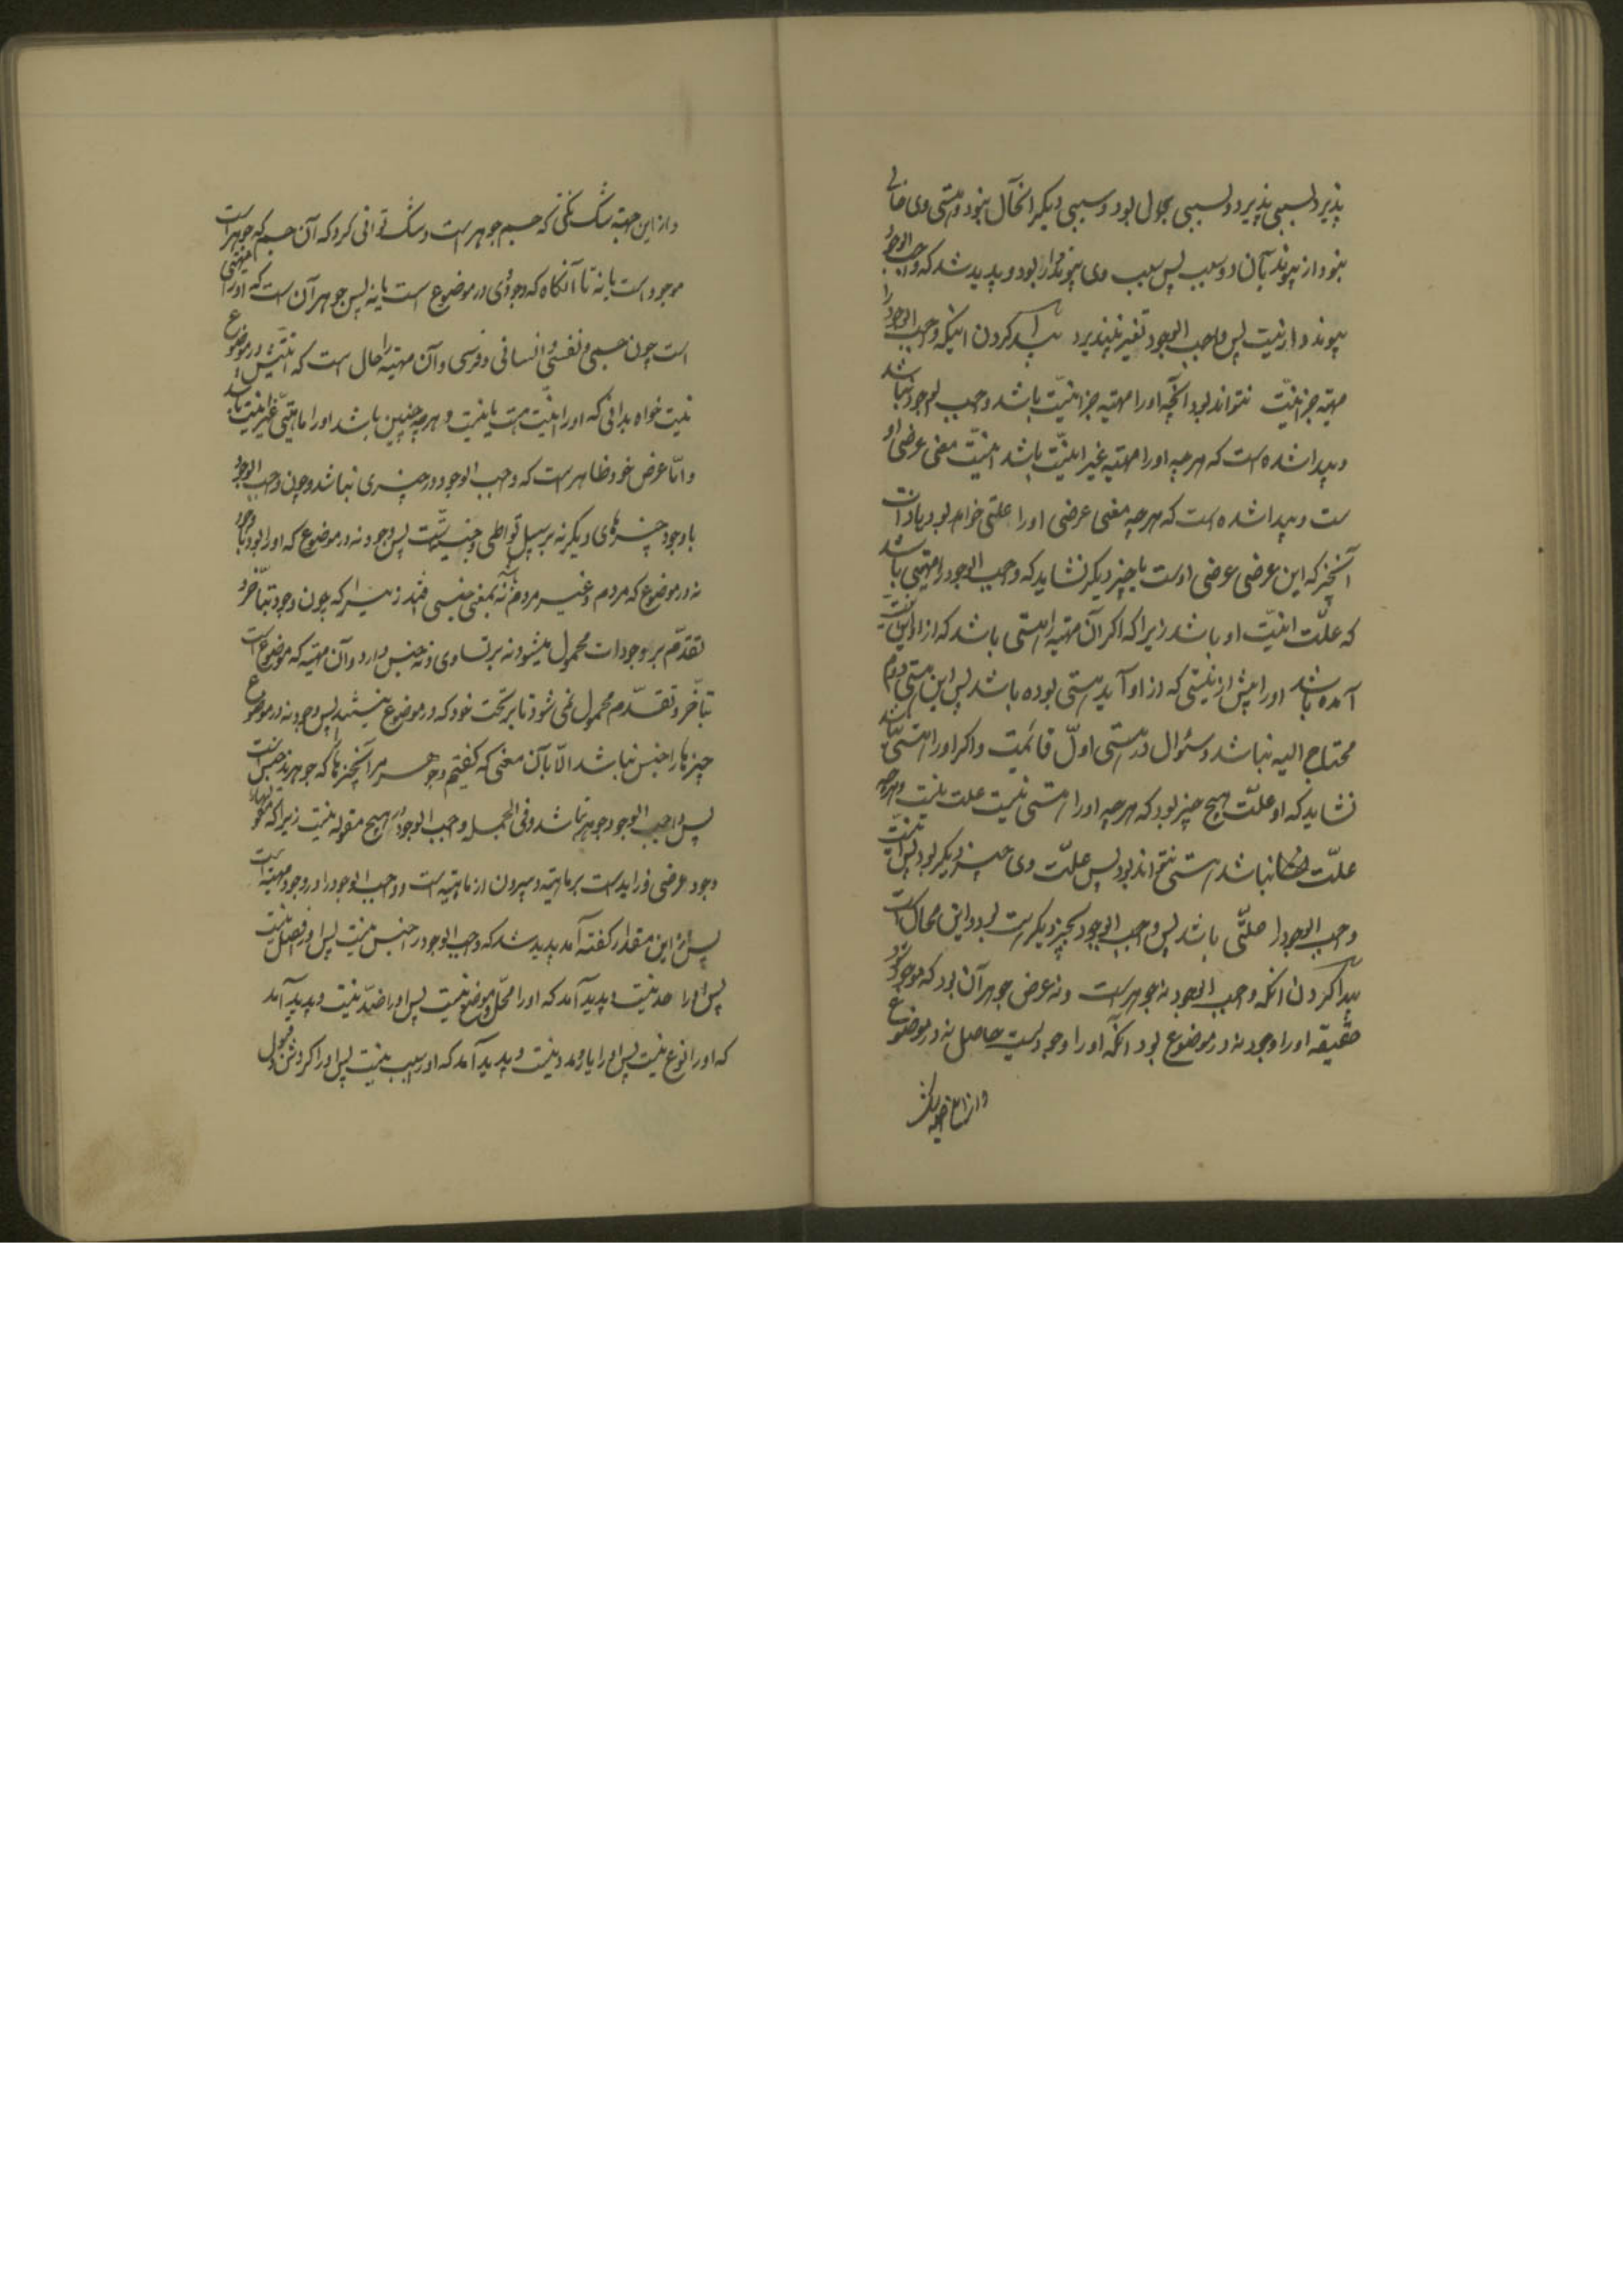 پذیرد بسببی پذیرد و بسببی بحال بود و بسببی دیگر آنحال نبود و هستی وی خالی
نبود از پیوند بآن دو سبب پس سبب وی پیوند دار بود و پدید شد که واجب الوجود
پیوند دار نیست پس واجب الوجود تغیر نپذیرد پیدا کردن اینکه واجب الوجود را
مهیّه جز انیّت نتواند بود آنچه او را مهیّه جز انیّت باشد واجب الوجود نباشد
و پیدا شده است که هرچه او را مهیّه غیر انیّت باشد انیّت معنی عرضی او
ست و پیدا شده است که هرچه معنی عرضی او را علتی خواهد بود یا ذات
آنچیز که این عرضی عرضی اوست یا چیز دیگر نشاید که واجب الوجود را مهیّتی باشد
که علّت انیّت او باشد زیرا که اگر آن مهیّه را هستی باشد که از او این انیّت
آمده باشد او را پیش از نیستی که از او آید هستی بوده باشد پس این هستی دوم
محتاج الیه نباشد و سئوال در هستی اوّل قائمست و اگر او را هستی نباشد
نشاید که او علّت هیچ چیز بود که هرچه او را هستی نیست علت نیست و هرچه
علّت نباشد هستی نتواند بود پس علّت وی چیز دیگر بود پس انیّت
واجب الوجود را علّتی باشد پس واجب الوجود بچیز دیگر هست بود و این محال است
پیدا کردن آنکه واجب الوجود نه جوهر است و نه عرض جوهر آن بود که موجود شود
حقیقة او را وجود نه در موضوع بود نه آنکه او را وجودیست حاصل نه در موضوع
و از این جهة شک
و از این جهة شک نکنی که جسم جوهر است و شک توانی کرد که آن جسم که جوهر است
موجود است یا نه تا آنگاه که وجود وی در موضوع است یا نه پس جوهر آن است که او را مهیّتی
است چون جسمی و نفسی و انسانی و فرسی و آن مهیّه را حال است که انیّتش در موضوع
نیست خواه بدانی که او را انیّت هست یا نیست و هرچه چنین باشد او را ماهیّتی غیر انیّت باشد
و امّا عرض خود ظاهر است که واجب الوجود در چیزی نباشد و چون واجب الوجود
با وجود چیزهای دیگر نه بر سبیل تواطی و جنسیّت است پس وجود نه در موضوع که او را بود با وجود
نه در موضوع که مردم و غیر مردم را نه بمعنی جنسی افتد زیرا که چون وجود بتأخّر و
تقدّم بر وجودات محمول میشود نه بر تساوی و نه جنس دارد و آن مهیّه که موضوع است
بتأخّر و تقدّم محمول نمی شود تا بر تحت خود که در موضوع نیستند پس وجود نه در موضوع
چیزها را جنس نباشد الّا بآن معنی که گفتیم و جوهر مر آنچیزها که جوهرند جنس است
پس واجب الوجود جوهر نباشد و فی الجمله واجب الوجود در هیچ مقوله نیست زیرا که
وجود عرضی و زاید است بر ماهیّه و بیرون از ماهیّه است و واجب الوجود را وجود مهیّة است
پس از این مقدار گفته آمد پدید شد که واجب الوجود را جنس نیست پس او را فصل نیست
پس او را حد نیست و پدید آمد که او را محلّ و موضوع نیست پس او را ضدّ نیست و پدید آمد
که او را نوع نیست پس او را یار و مد نیست و پدید آمد که او را سبب نیست پس او را گردش و قبول